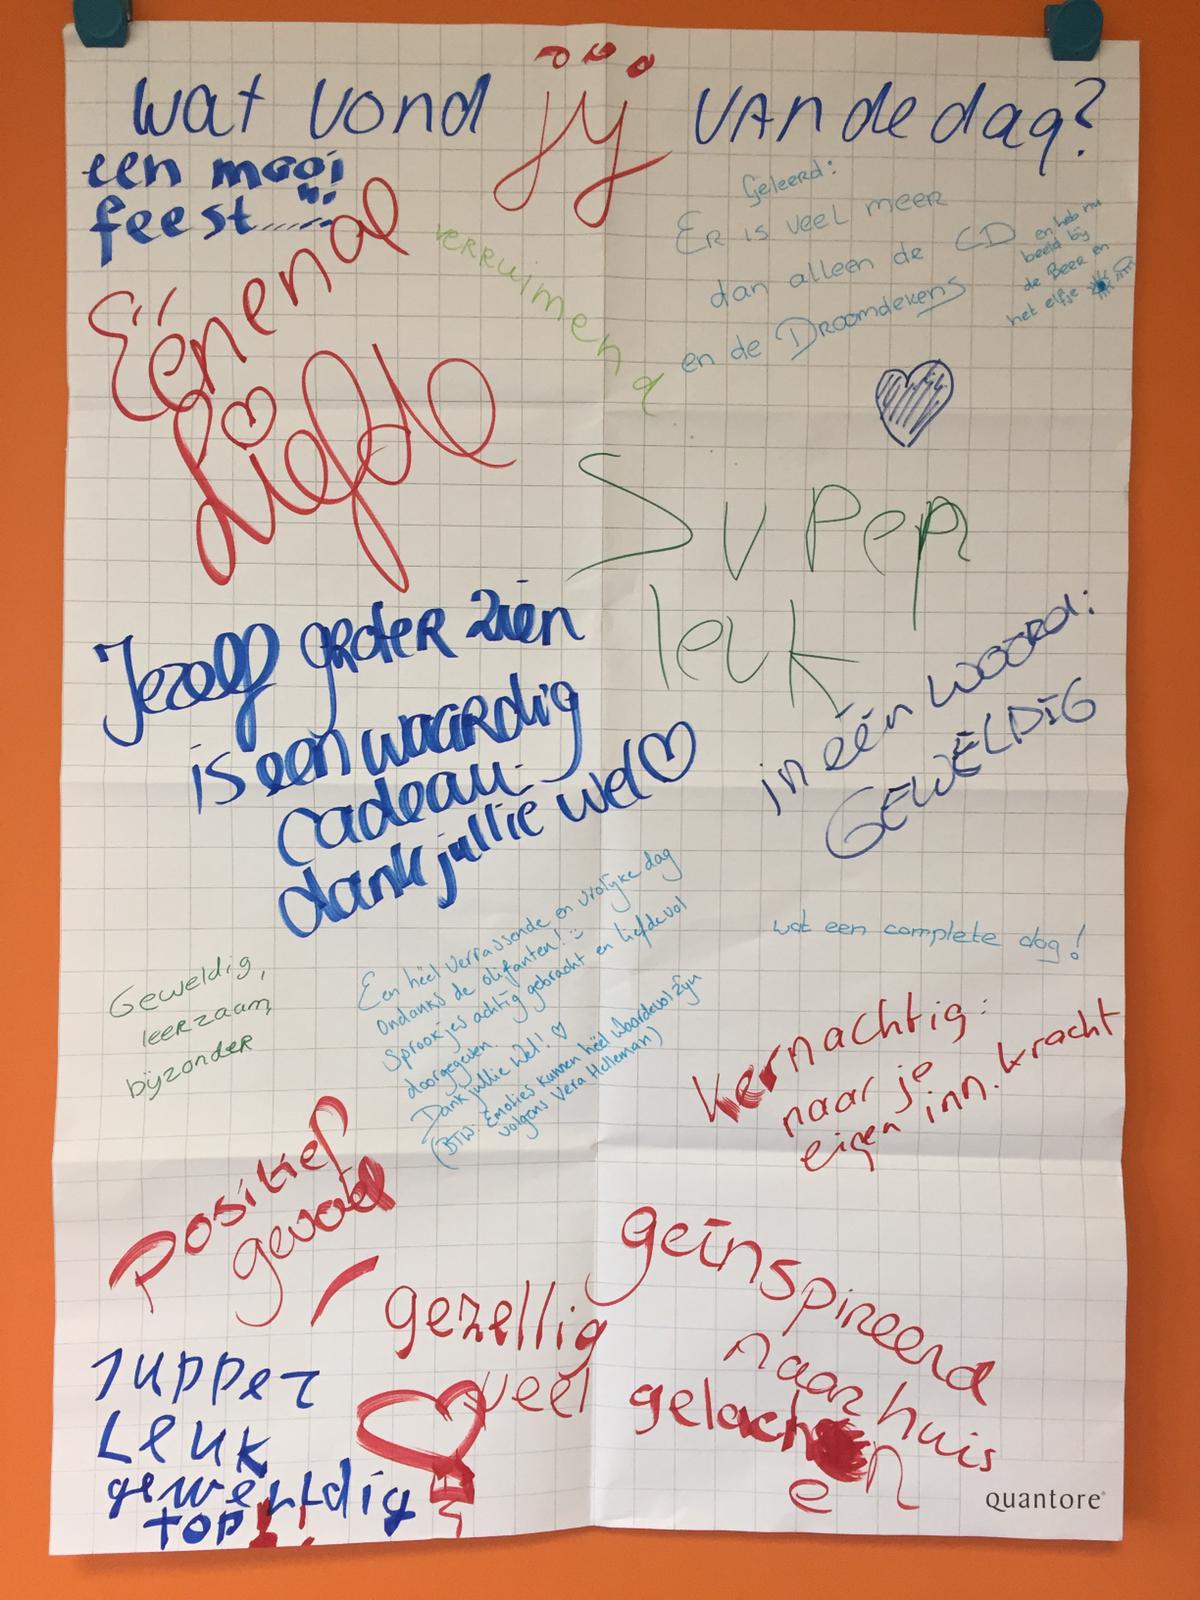 wat vond jij van de dag?
een mooi
feest.....
Één en al
Liefde
verruimend
Geleerd:
Er is veel meer
dan alleen de CD
en de Droomdekens
en heb nu
beeld bij
de Beer en
het elfje
Super
leuk
Jezelf groter zien
is een waardig
cadeau.
dank jullie wel
in één woord:
GEWELDIG
Geweldig,
leerzaam,
bijzonder
Een héél verrassende en vrolijke dag
ondanks de olifanten!
Sprookjesachtig gebracht en liefdevol
doorgegeven.
Dank jullie wel!
(BTW. Emoties kunnen héél waardevol zijn
volgens Vera Helleman)
wat een complete dag!
Kernachtig:
naar je
eigen inn. kracht
positief
gevoel
geïnspireerd
naar huis
gezellig
veel gelachen
supper
Leuk
geweldig
top!!
quantore